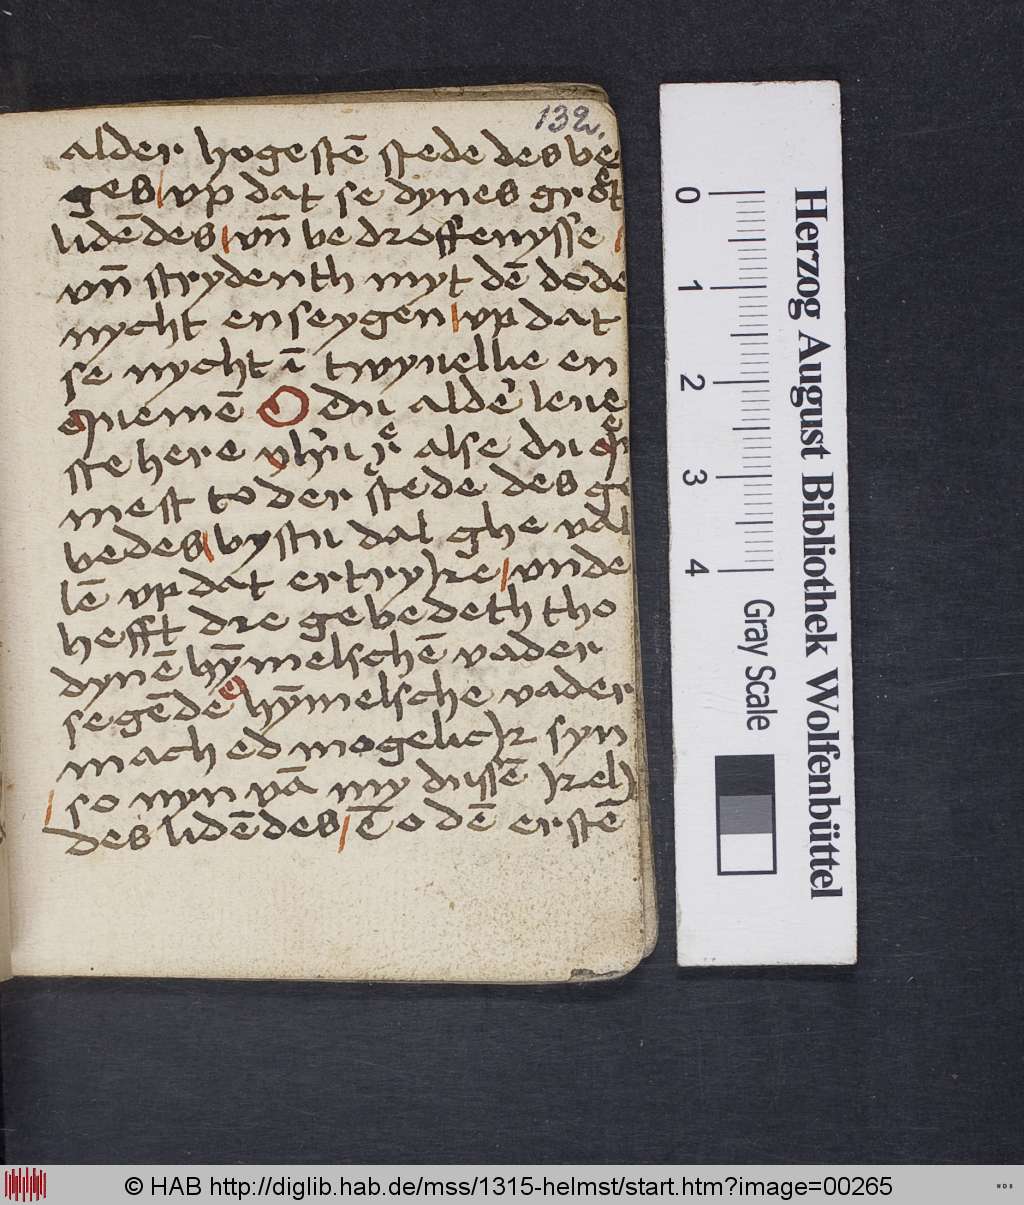 132.
alder hogestē stede des be
ges / vp dat se dynes grot
lidēdes / vn̄ bedroffenysse /
vn̄ strydenth myt dē dode
nycht enseygen / vp dat
se nycht ī twyuellie en
quemē O du alder leue
ste here alse du q
mest to der stede des ge
bedes / bystu dal ghe val
lē vp dat ertryke / vnde
hefft dre gebedeth tho
dynē hȳmelschē vader
segēde O hȳmelsche vader
mach ed mogelick syn
so nyn vā my dussē kelk
des lidēdes / ē o dē erstē
0
1
2
3
4
Gray Scale
Herzog August Bibliothek Wolfenbüttel
© HAB http://diglib.hab.de/mss/1315-helmst/start.htm?image=00265